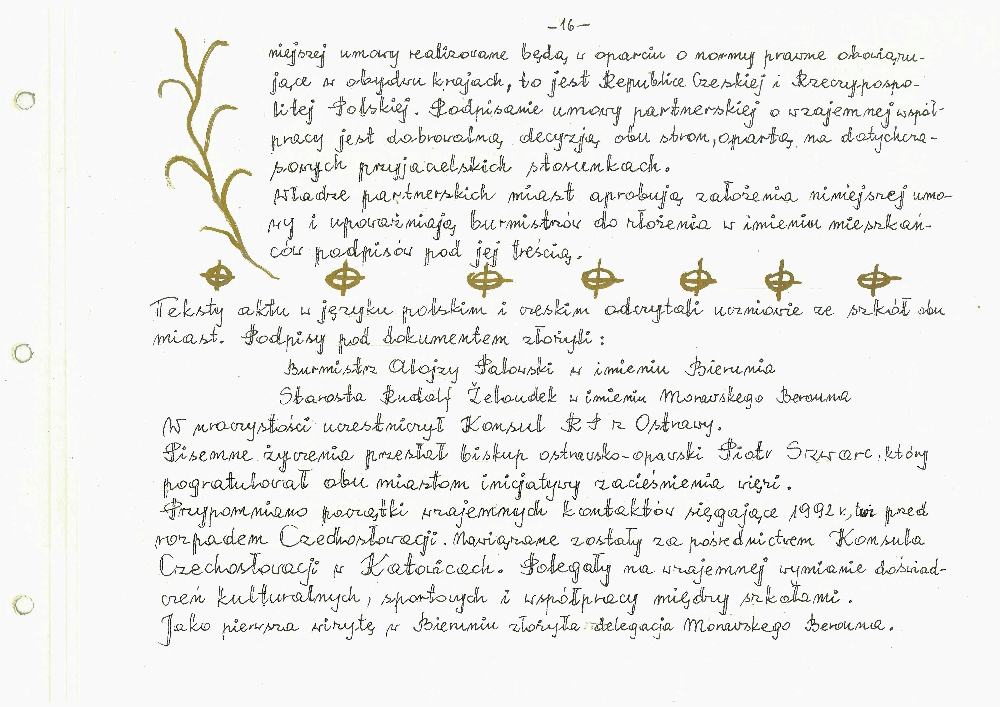 -16-
niejszej umowy realizowane będą w oparciu o normy prawne obowiązu-
jące w obydwu krajach, to jest Republice Czeskiej i Rzeczypospo-
litej Polskiej. Podpisanie umowy partnerskiej o wzajemnej współ-
pracy jest dobrowolną decyzją obu stron, opartą na dotychcza-
sowych przyjacielskich stosunkach.
Władze partnerskich miast aprobują założenia niniejszej umo-
wy i upoważniają burmistrzów do złożenia w imieniu mieszkań-
ców podpisów pod jej treścią.
Teksty aktu w języku polskim i czeskim odczytali uczniowie ze szkół obu
miast. Podpisy pod dokumentem złożyli:
Burmistrz Alojzy Palowski w imieniu Bierunia
Starosta Rudolf Żelaudek w imieniu Moravskego Berouna
W uroczystości uczestniczył Konsul RP z Ostrawy.
Pisemne życzenia przesłał biskup ostravsko-opavski Piotr Szwarc, który
pogratulował obu miastom inicjatywy zacieśnienia więzi.
Przypomniano początki wzajemnych kontaktów sięgające 1992 r., przed
rozpadem Czechosłowacji. Nawiązane zostały za pośrednictwem Konsula
Czechosłowacji w Katowicach. Polegały na wzajemnej wymianie doświad-
czeń kulturalnych, sportowych i współpracy między szkołami.
Jako pierwsza wizytę w Bieruniu złożyła delegacja Moravskego Berouna.